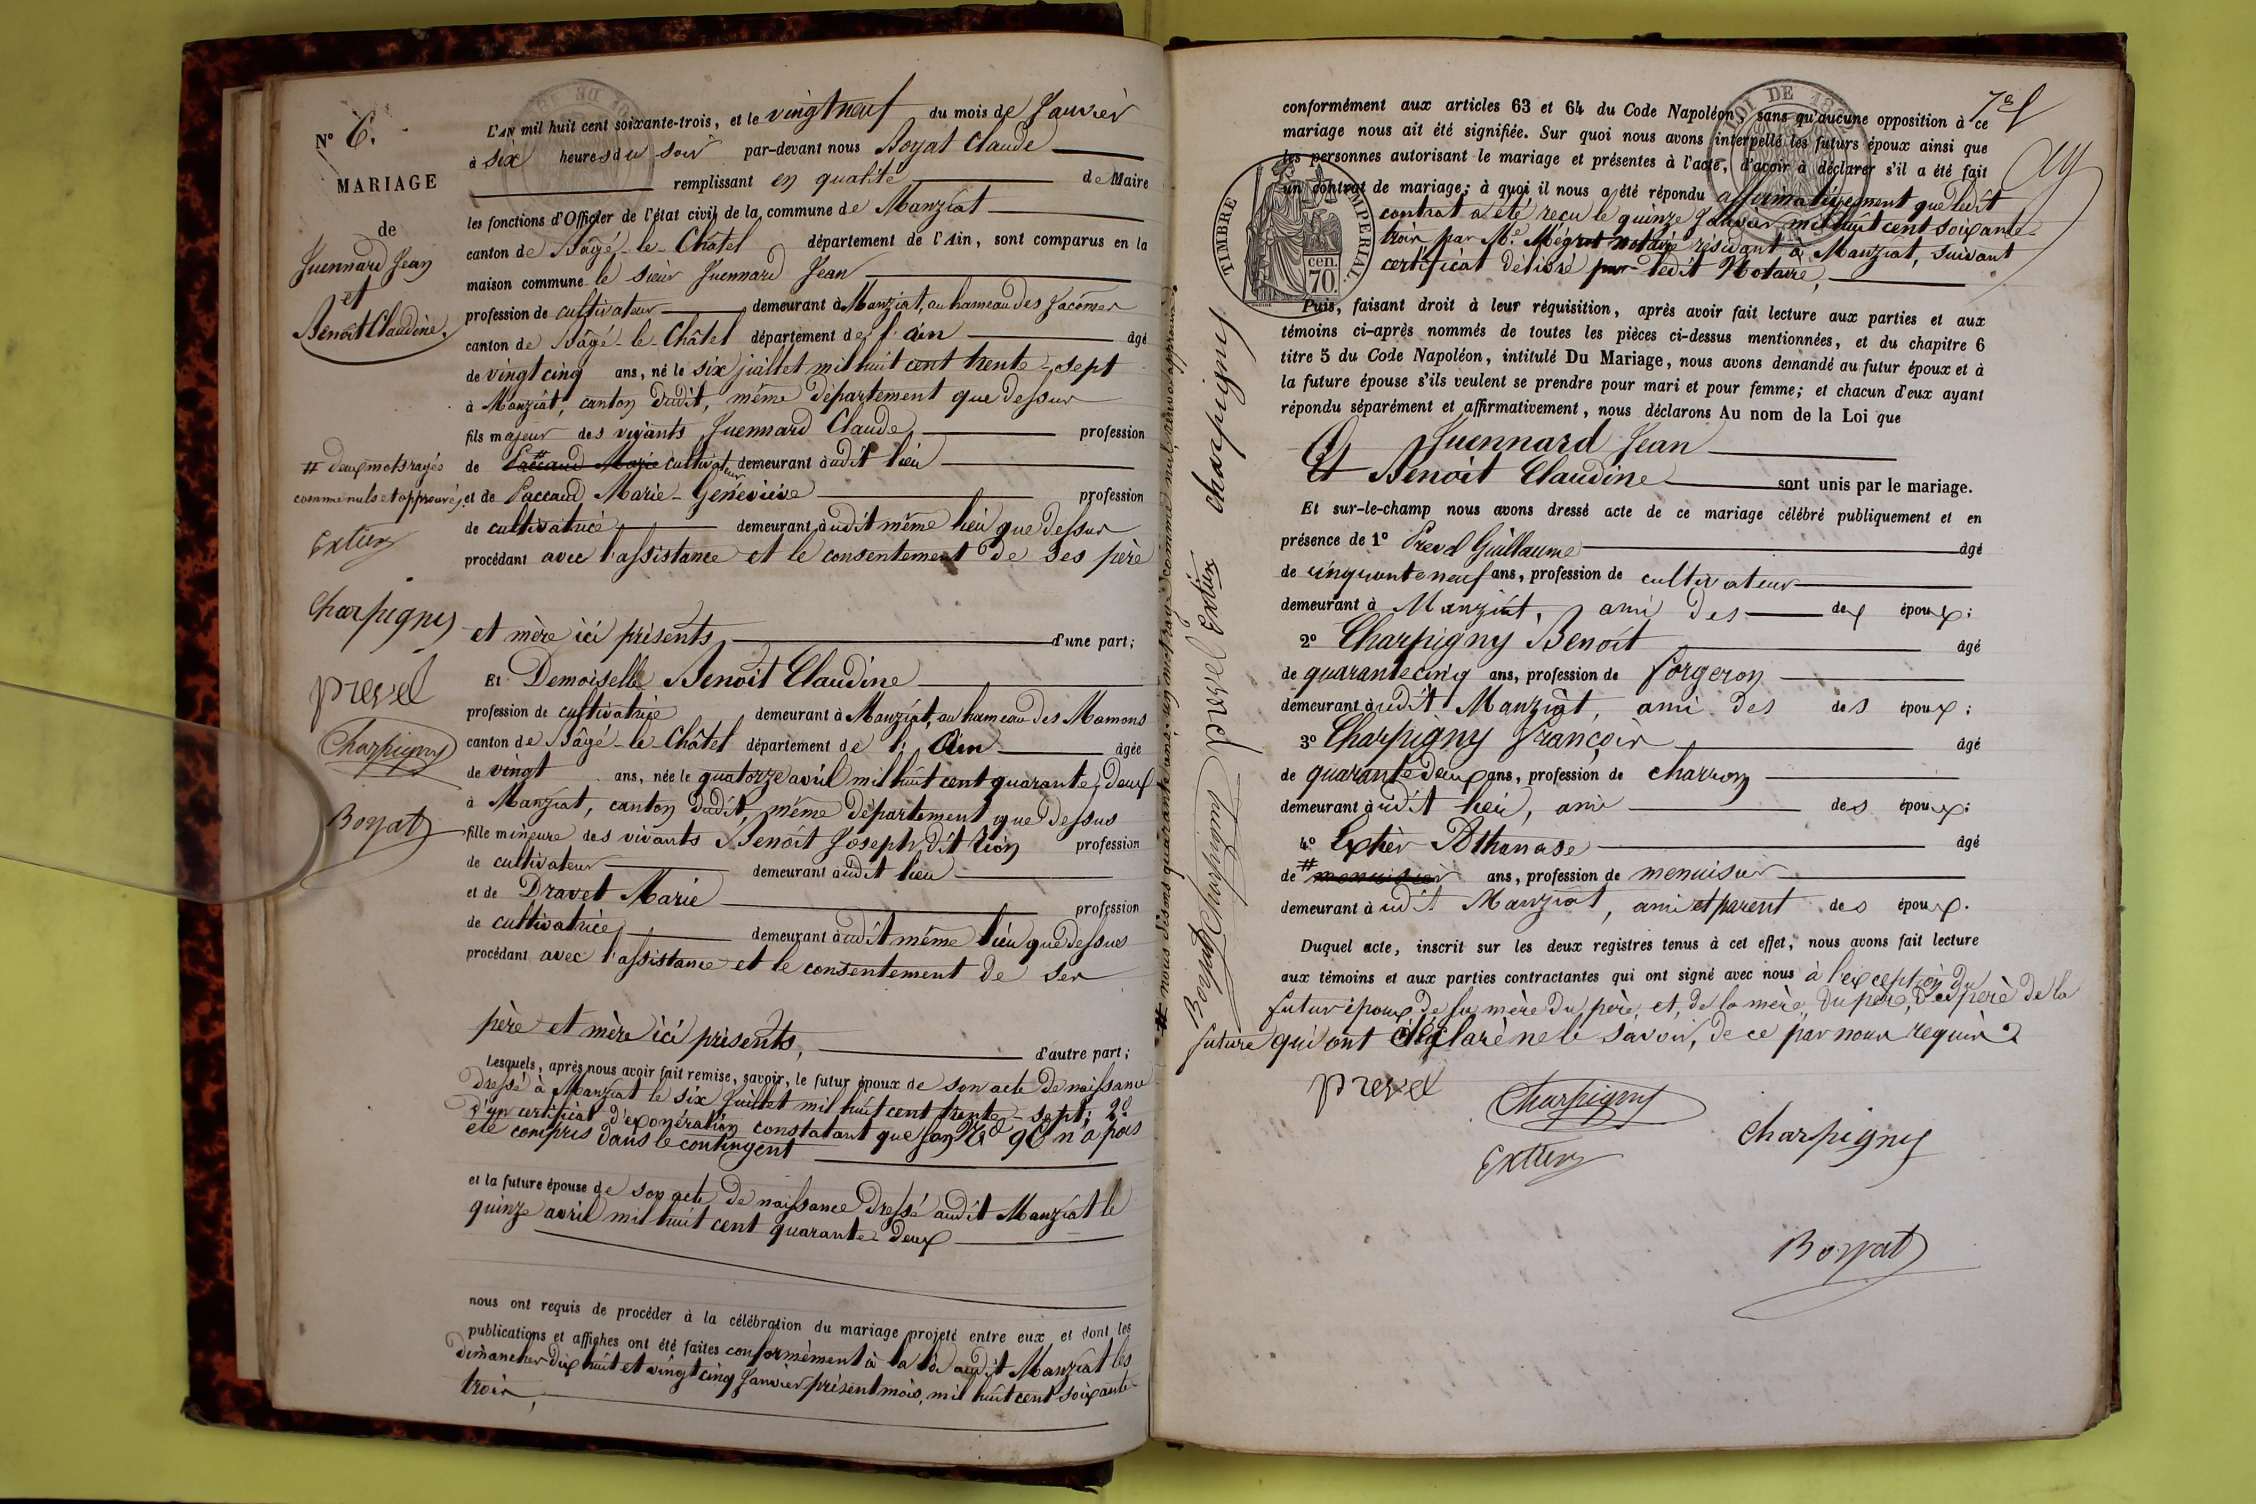 N° 6.
MARIAGE
de
Juennard Jean
et
Benoit Claudine.
# deux mots rayés
comme nuls et approuvés.
Extier
Charpigny
prevel
Charpigny
Boyat
L'AN mil huit cent soixante-trois, et le vingt neuf du mois de Janvier
à six heures du soir par-devant nous Boyat Claude
remplissant en qualité de Maire
les fonctions d'Officier de l'état civil de la commune de Manziat
canton de Bâgé-le-Châtel département de l'Ain, sont comparus en la
maison commune le sieur Juennard Jean
profession de cultivateur demeurant à Manziat, au hameau des Jacômes
canton de Bâgé-le-Châtel département de l'ain âgé
de vingt cinq ans, né le six juillet mil huit cent trente-sept
à Manziat, canton dudit, même département que dessus
fils majeur des vivants Juennard Claude profession
de # Paccaud Marie cultivateur demeurant audit lieu
et de Paccaud Marie-Geneviève profession
de cultivatrice demeurant audit même lieu que dessus
procédant avec l'assistance et le consentement de ses père
et mère ici présents, d'une part;
Et Demoiselle Benoit Claudine
profession de cultivatrice demeurant à Manziat, au hameau des Mamons
canton de Bâgé-le-Châtel département de l'Ain âgée
de vingt ans, née le quatorze avril mil huit cent quarante-deux
à Manziat, canton dudit, même département que dessus
fille mineure des vivants Benoit Joseph dit Lion profession
de cultivateur demeurant audit lieu
et de Dravet Marie profession
de cultivatrice demeurant audit même lieu que dessus
procédant avec l'assistance et le consentement de ses
père et mère ici présents, d'autre part;
Lesquels, après nous avoir fait remise, savoir, le futur époux de son acte de naissance
dressé à Manziat le six Juillet mil huit cent trente-sept; 2°
d'un certificat d'exonération constatant que son N° 96 n'a pas
été compris dans le contingent
et la future épouse de son acte de naissance dressé audit Manziat le
quinze avril mil huit cent quarante deux
nous ont requis de procéder à la célébration du mariage projeté entre eux et dont les
publications et affiches ont été faites conformément à la loi audit Manziat les
dimanches dix huit et vingt cinq Janvier présent mois, mil huit cent soixante-
trois,
# nous disons quarante ans, un mot rayé comme nul, renvoi approuvé.
Boyat Charpigny prevel Extier Charpigny
7e f
LOI DE
TIMBRE IMPERIAL
70 cen.
conformément aux articles 63 et 64 du Code Napoléon sans qu'aucune opposition à ce
mariage nous ait été signifiée. Sur quoi nous avons interpellé les futurs époux ainsi que
les personnes autorisant le mariage et présentes à l'acte, d'avoir à déclarer s'il a été fait
un contrat de mariage; à quoi il nous a été répondu affirmativement que ledit
contrat a été reçu le quinze Janvier mil huit cent soixante-
trois, par Me Mégrat notaire résidant à Manziat, suivant
certificat délivré par ledit Notaire,
Puis, faisant droit à leur réquisition, après avoir fait lecture aux parties et aux
témoins ci-après nommés de toutes les pièces ci-dessus mentionnées, et du chapitre 6
titre 5 du Code Napoléon, intitulé Du Mariage, nous avons demandé au futur époux et à
la future épouse s'ils veulent se prendre pour mari et pour femme; et chacun d'eux ayant
répondu séparément et affirmativement, nous déclarons Au nom de la Loi que
Juennard Jean
Et Benoit Claudine sont unis par le mariage.
Et sur-le-champ nous avons dressé acte de ce mariage célébré publiquement et en
présence de 1° Prevel Guillaume âgé
de cinquante neuf ans, profession de cultivateur
demeurant à Manziat, ami des des époux;
2° Charpigny Benoit âgé
de quarante cinq ans, profession de forgeron
demeurant audit Manziat, ami des des époux;
3° Charpigny François âgé
de quarante deux ans, profession de charron
demeurant audit lieu, ami des époux;
4° Extier Athanase âgé
de # menuisier ans, profession de menuisier
demeurant audit Manziat, ami et parent des époux.
Duquel acte, inscrit sur les deux registres tenus à cet effet, nous avons fait lecture
aux témoins et aux parties contractantes qui ont signé avec nous à l'exception du
futur époux de sa mère du père, et, de la mère, du père, de la
future qui ont déclaré ne le savoir, de ce par nous requis
prevel
Charpigny
Charpigny
Extier
Boyat